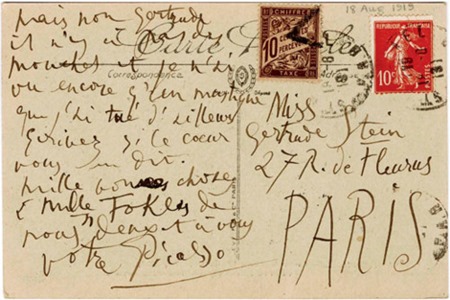 mais non Gertrude
il n'y a pas de
mouches et je n'ai
vu encore qu'un mostique
que j'ai tué d'ailleurs
Ecrivez si le coeur
vous en dit.
mille bonnes choses
& mille de
nous deux et à vous
votre Picasso
Carte Postale
Correspondance
Adresse
CHIFFRE
10
CENTIMES
A PERCEVOIR
TAXE
18 Aug 1919
REPUBLIQUE FRANÇAISE
10c
POSTES
Miss
Gertrude Stein
27 R. de Fleurus
PARIS